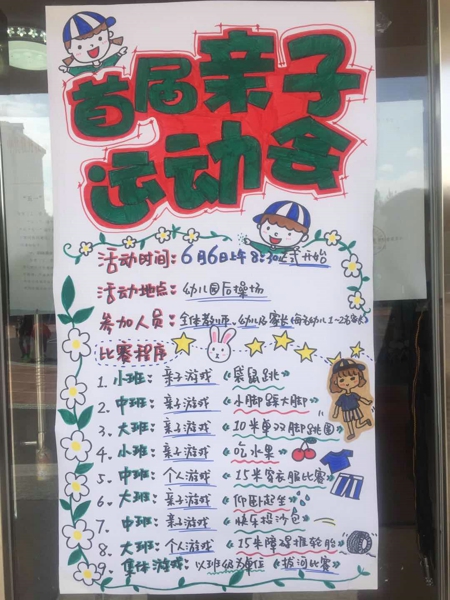 首届亲子
运动会
活动时间：6月6日上午8:30正式开始
活动地点：幼儿园后操场
参加人员：全体教师、幼儿及家长(每名幼儿1~2名家长)
比赛程序
1. 小班：亲子游戏《袋鼠跳》
2. 中班：亲子游戏《小脚踩大脚》
3. 大班：亲子游戏《10米单双脚跳圈》
4. 小班：亲子游戏《吃水果》
5. 中班：个人游戏《15米套衣服比赛》
6. 大班：亲子游戏《仰卧起坐》
7. 中班：亲子游戏《快乐投沙包》
8. 大班：个人游戏《15米障碍推轮胎》
9. 集体游戏：以班级为单位《拔河比赛》